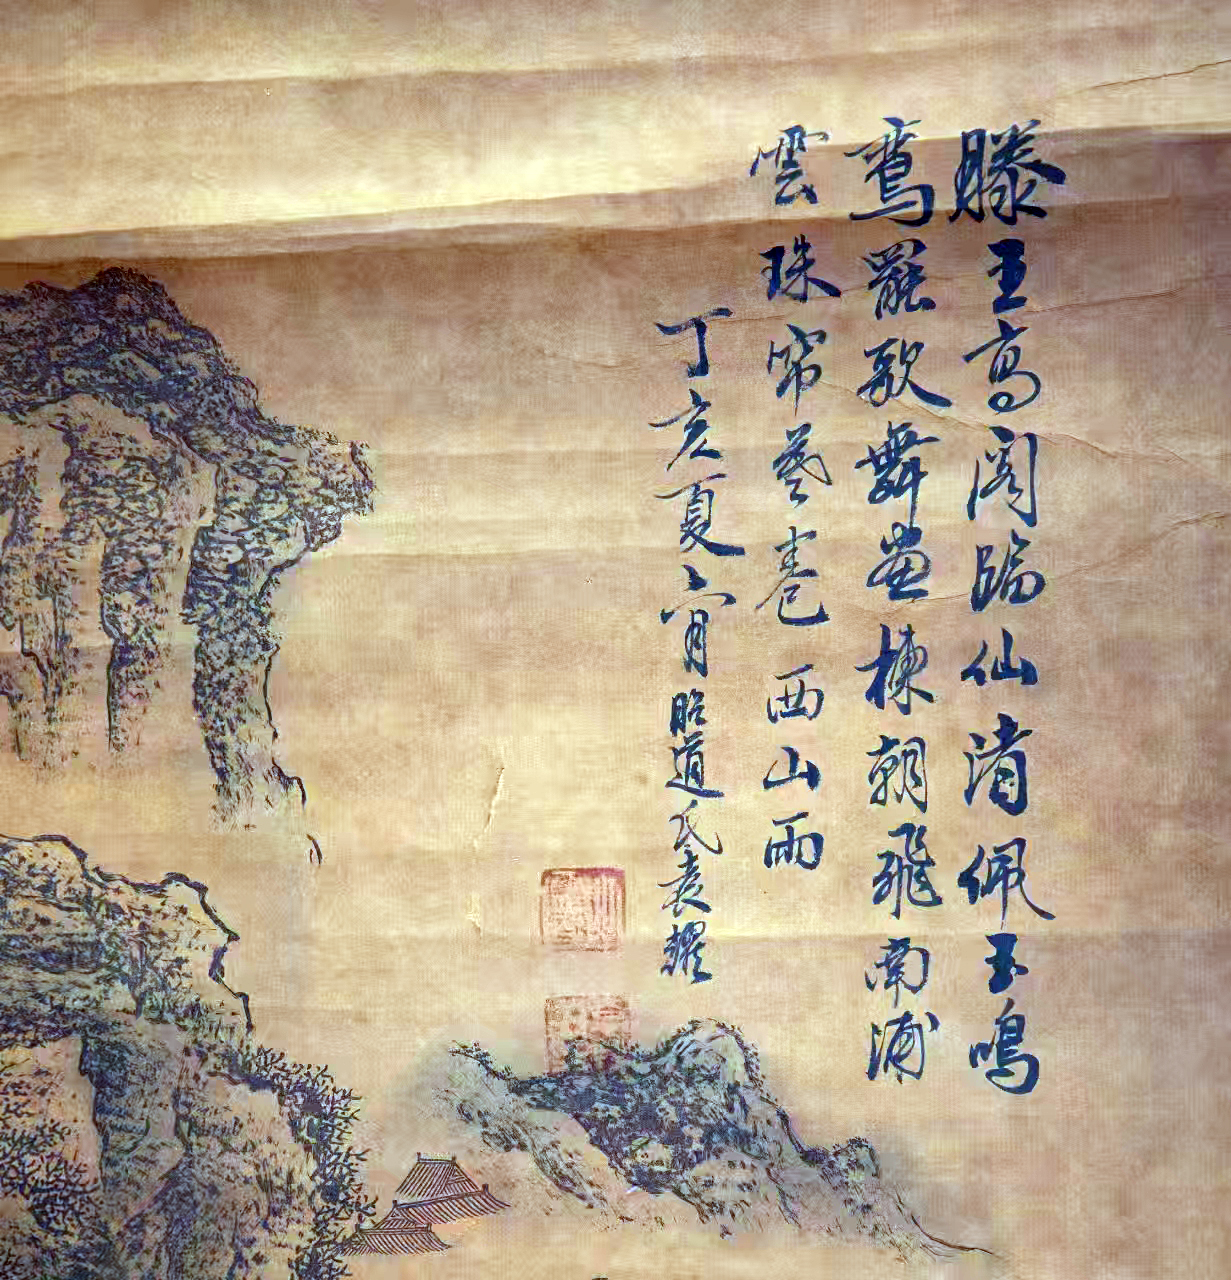 滕王高閣臨仙渚佩玉鳴
鸞罷歌舞畫棟朝飛南浦
雲珠帘暮卷西山雨
丁亥夏六月昭道氏袁耀